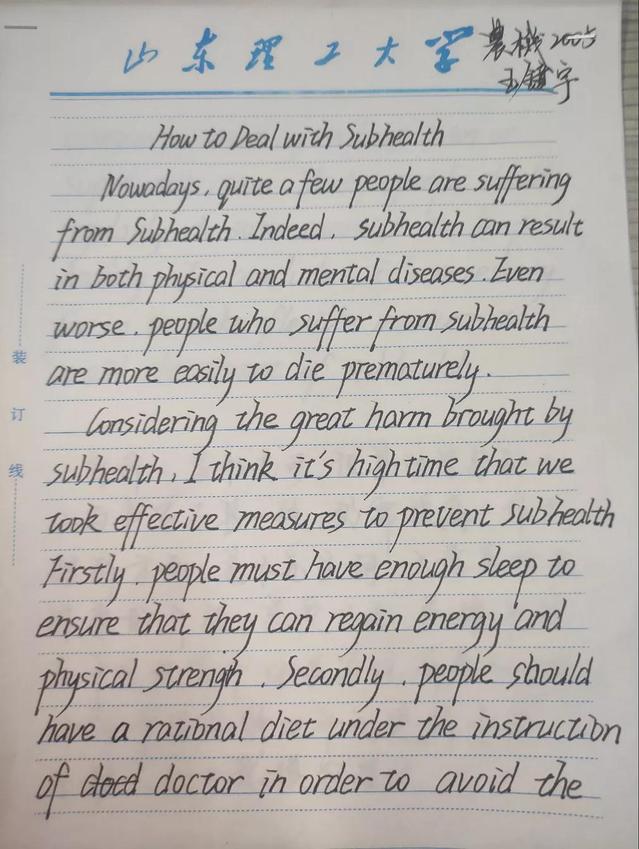 山东理工大学
農機2005
王镇宇
How to Deal with Subhealth
Nowadays, quite a few people are suffering
from Subhealth. Indeed, subhealth can result
in both physical and mental diseases. Even
worse, people who suffer from subhealth
are more easily to die prematurely.
Considering the great harm brought by
subhealth, I think it's high time that we
took effective measures to prevent subhealth
Firstly, people must have enough sleep to
ensure that they can regain energy and
physical strengh. Secondly, people should
have a rational diet under the instruction
of doctor in order to avoid the
装
订
线